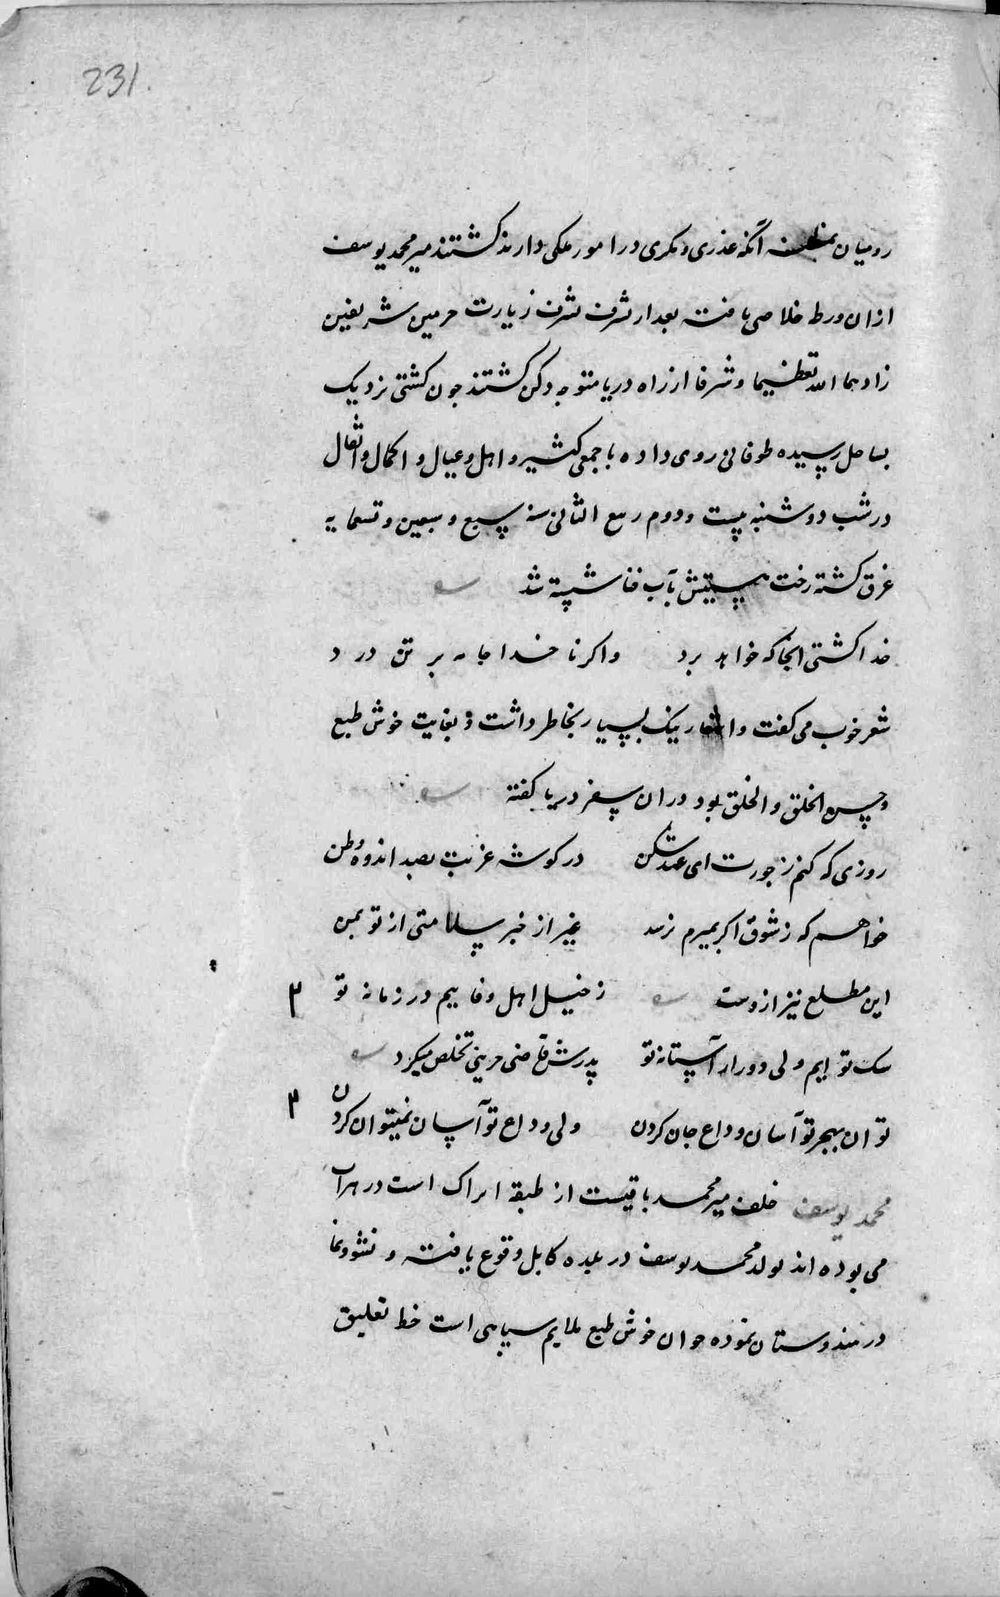 231
رومیان بمظنه آنکه عذری و مکری در امور ملکی دارند کشتند میر محمد یوسف
ازان ورطه خلاصی یافته بعد از شرف شرف زیارت حرمین شریفین
زادهما الله تعظیما و شرفا از راه دریا متوجه دکن کشتند چون کشتی نزدیک
بساحل رسیده طوفانی روی داده با جمعی کثیر و اهل و عیال و احمال و اثقال
در شب دوشنبه بیست و دوم ربیع الثانی سنه سبع و سبعین و تسعمایه
غرق کشته رخت هستیش بآب فنا شسته شد
خدا کشتی انجا که خواهد برد واکر ناخدا جامه بر تن درد
شعر خوب می کفت و اشعار نیک بسیار بخاطر داشت و بغایت خوش طبع
و حسن الخلق و الخلق بود دران سفر دریا کفته
روزی که کنم ز جورت ای عهد شکن در کوشه غربت بصد اندوه وطن
خواهم که ز شوق اکر بمیرم نرسد غیر از خبر سلامتی از تو بمن
این مطلع نیز ازوست ز خیل اهل وفاییم در زمانه تو ۳
سک تو ایم ولی دور از آستانه تو پدرش قاضی حرینی تخلص میکرد
توان بهجر تو آسان وداع جان کردن ولی وداع تو آسان نمیتوان کردن ۳
محمد یوسف خلف میر محمد باقیست از طبقه اتراک است در هرات
می بوده اند تولد محمد یوسف در بلده کابل وقوع یافته و نشو و نما
در هندوستان نموده جوان خوش طبع ملایم سپاهی است خط تعلیق